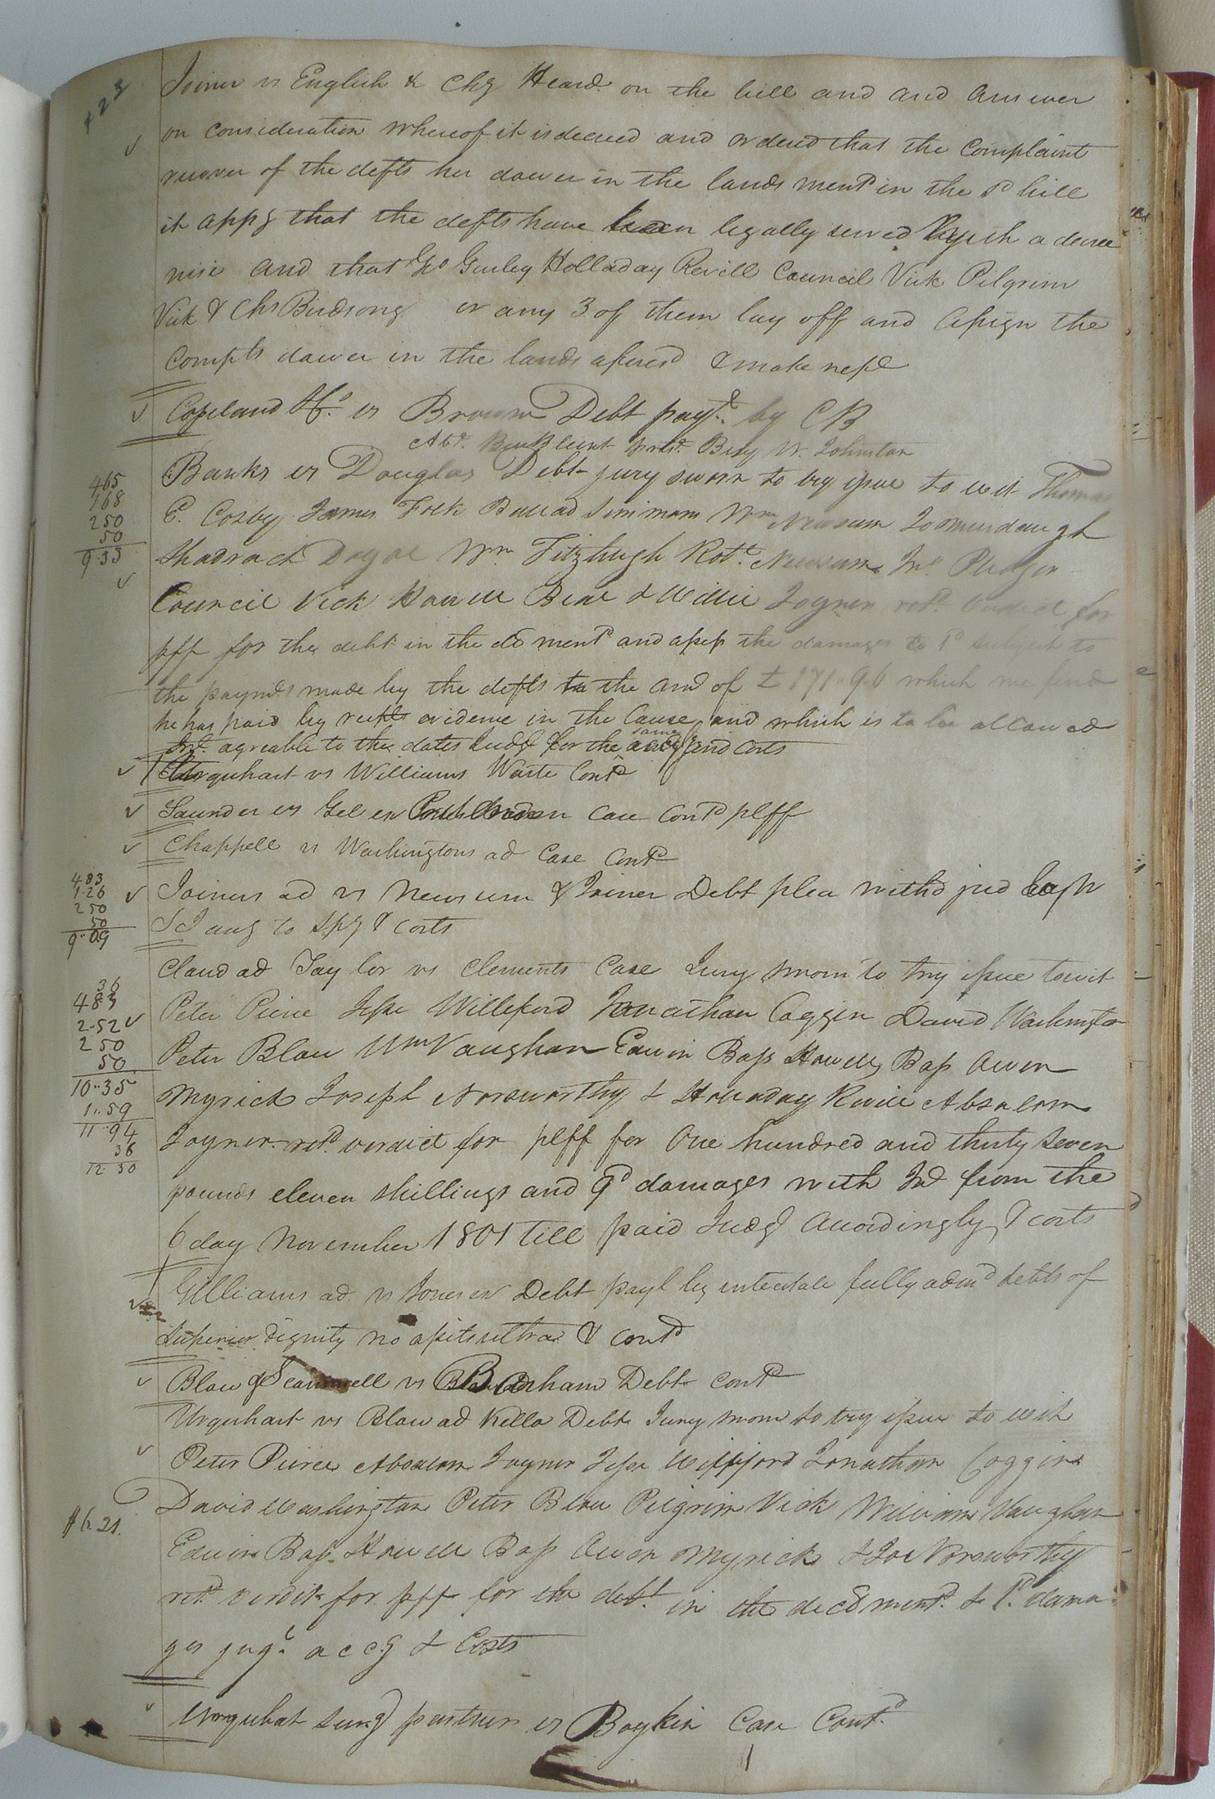 423
Joiner vs English & Chy Heard on the bill and and answer
on consideration whereof it is decreed and ordered that the Complaint
recover of the defts her dower in the lands mentd in the sd bill
it appg that the defts have been legally served a decree
nisi and that Jno Gurley Holladay Revill Council Vick Pilgrim
Vick & Chs Birdsong or any 3 of them lay off and assign the
Compts dower in the lands aforesd & make rept
Copeland & Co. vs Brown Debt payt. by CB
Abr. Blunt Benj W. Johnston
Banks vs Douglas Debt jury sworn to try issue to wit Thomas
E. Cosby James Fork Simmons Wm Newsum
Shadrach Wm. Fitzhugh Robt. Newsum Jno
Council Vick Howell & Willie Joyner retd. verdict for
pff for the debt in the de mentd and assess the damages to 1d subject to
the paymts made by the defts to the amt of £171-9-6 which we find
he has paid by evidence in the Cause and which is to be allowed
agreable to the dates Judgt for the same and costs
Urquhart vs Williams Waste Contd
Saunder vs Gel ex case Contd plff
Chappell vs Washingtons ad Case Contd
Joiners ad vs Newsum & Joiner Debt plea withd jud
S J aug to Spg & costs
Claud ad Taylor vs Clements Case Jury sworn to try issue towit
Peter Pierce Jesse Williford Jonathan Coggin David Washington
Peter Blow Wm Vaughan Edwin Bass Howell Bass Owen
Myrick Joseph Norsworthy & Holladay Revill Absalom
Joyner retd. verdict for plff for One hundred and thirty seven
pounds eleven shillings and 9d damages with Int from the
6 day November 1801 till paid Judgt accordingly & costs
Williams ad vs Jones ex Debt payt by intestate fully admd debts of
superior dignity no assits ultra & contd
Blow & Scammell vs Barham Debt contd
Urquhart vs Blow ad Kello Debt Jury sworn to try issue to wit
Peter Pierce Absalom Joyner Jesse Williford Jonathan Coggin
David Washington Peter Blow Pilgrim Vick William Vaughan
Edwin Bass Howell Bass Owen Myrick & Jos Norsworthy
retd verdit for pff for the debt. in the decd mentd. & 1d. dama
ges jugt. accg & Costs
Urquhat survg partner vs Boykin Case Contd.
465
168
250
50
9-33
483
1-26
250
50
9-09
36
483
2-52
250
50
10-35
1-59
11 94
36
12 30
$6.21.